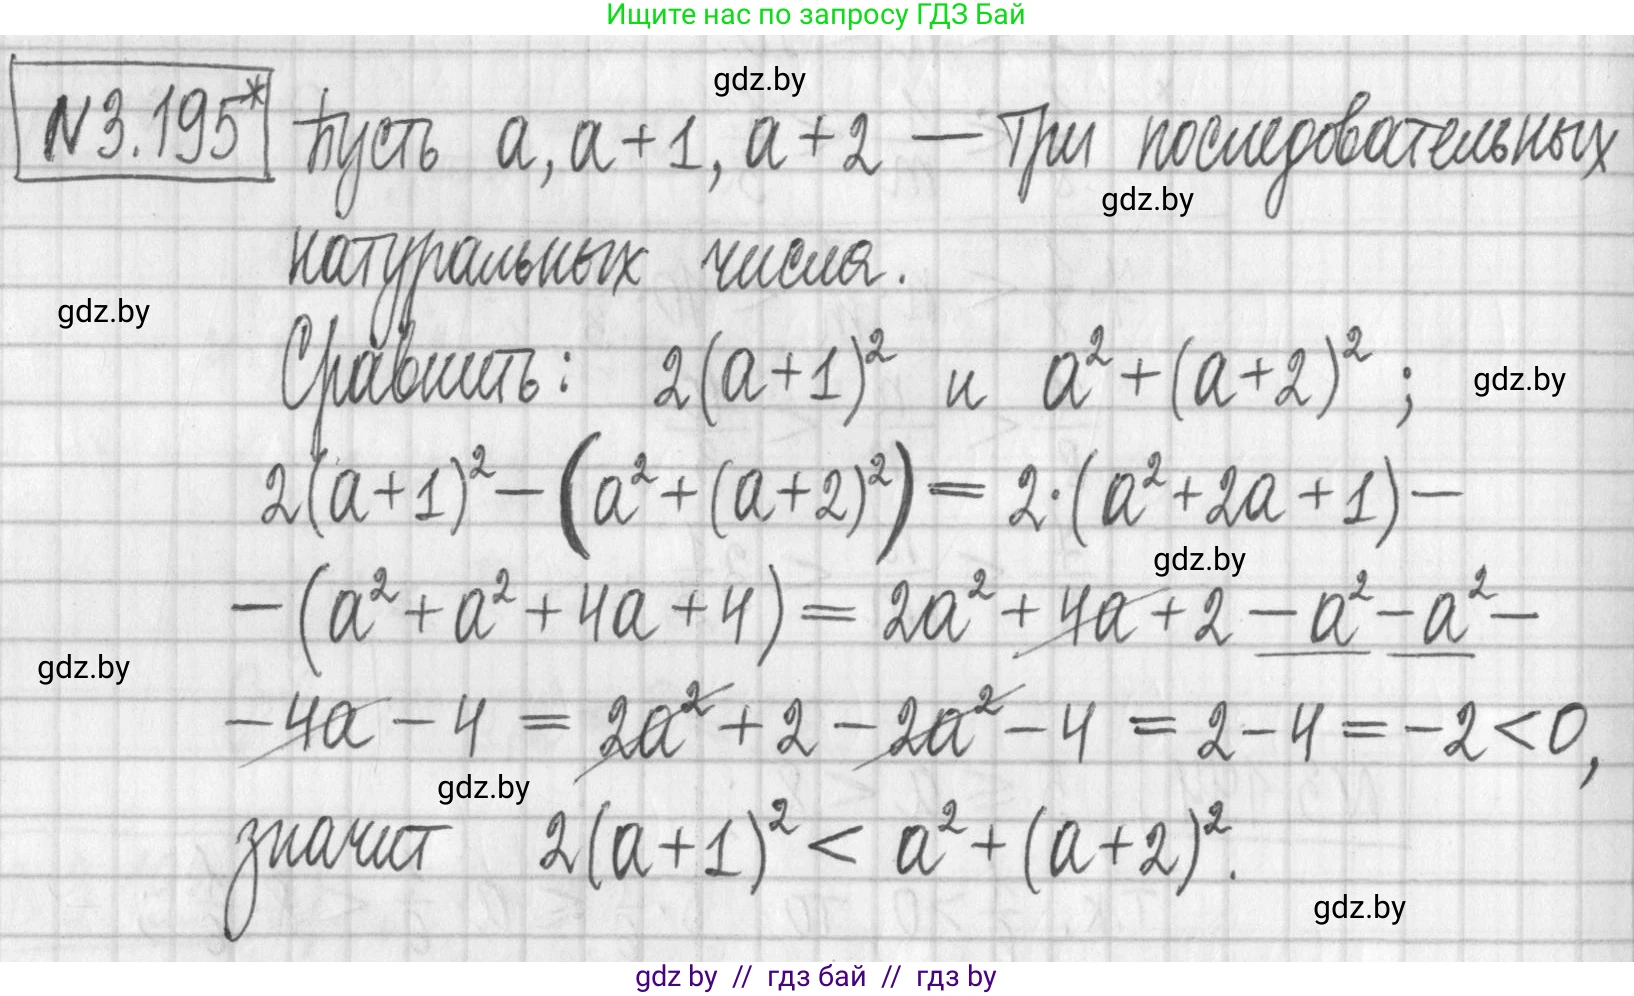 Ищите нас по запросу ГДЗ Бай
gdz.by
N3.195* Пусть a, a+1, a+2 — три последовательных
gdz.by
натуральных числа.
gdz.by
Сравнить: 2(a+1)² и a²+(a+2)²;
gdz.by
2(a+1)²-(a²+(a+2)²)=2·(a²+2a+1)-
gdz.by
-(a²+a²+4a+4)=2a²+4a+2-a²-a²-
gdz.by
-4a-4=2a²+2-2a²-4=2-4=-2<0,
gdz.by
значит 2(a+1)²<a²+(a+2)².
gdz.by
gdz by // гдз бай // гдз by